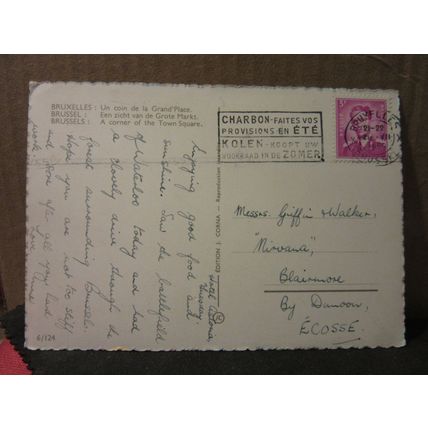 BRUXELLES : Un coin de la Grand'Place.
BRUSSEL : Een zicht van de Grote Markt.
BRUSSELS : A corner of the Town Square.
CHARBON-FAITES VOS
PROVISIONS EN ÉTÉ
KOLEN-KOOPT UW
VOORRAAD IN DE ZOMER
BRUXELLES
21-22
BRUSSEL
Hotel
Thursday
Enjoying good food and
sunshine. Saw the battlefield
of Waterloo today and had
a lovely drive through the
surrounding Brussels.
Hope you are not too stiff
and sore after all your hard
work.
Love
Messrs. Griffin & Walker,
"Nirvana",
Blairmore
By Dunoon,
ÉCOSSE.
EDITION J. CORNA - Reproduction
6/124